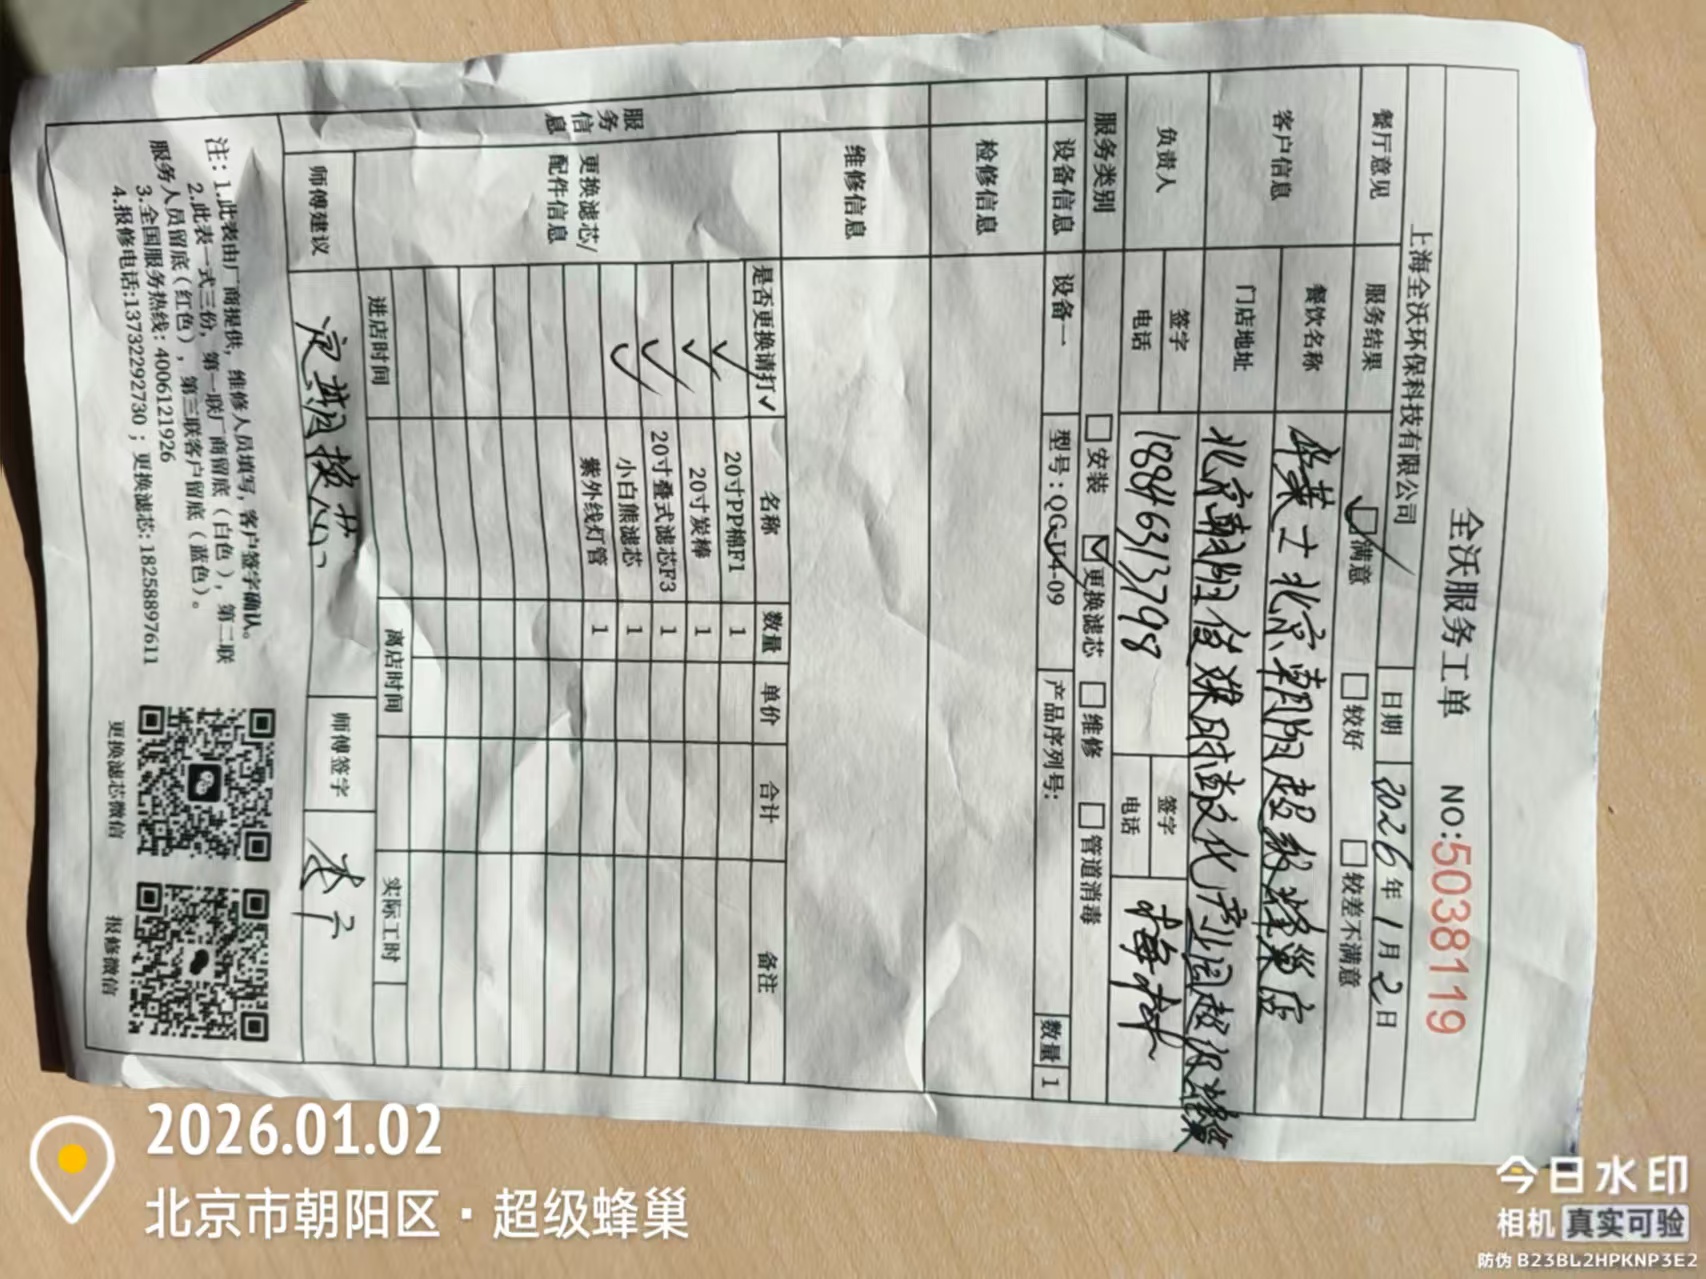 全沃服务工单 NO:5038119
上海全沃环保科技有限公司 日期 2026年1月2日
餐厅意见 服务结果 满意 较好 较差不满意
客户信息 餐饮名称 北京朝阳超级蜂巢店
门店地址 北京朝阳 时尚文化产业园超级蜂巢
负责人 签字 签字
电话 188116313798 电话
服务类别 安装 更换滤芯 维修 管道消毒
设备信息 设备一 型号:QG-U4-09 产品序列号: 数量 1
检修信息
维修信息
服务信息
更换滤芯/配件信息
是否更换请打✓ 名称 数量 单价 合计 备注
✓ 20寸PP棉F1 1
✓ 20寸炭棒 1
✓ 20寸叠式滤芯F3 1
✓ 小白熊滤芯 1
紫外线灯管 1
进店时间 离店时间 实际工时
师傅建议 定期换芯 师傅签字
注:1.此表由厂商提供,维修人员填写,客户签字确认。
2.此表一式三份,第一联厂商留底(白色),第二联
服务人员留底(红色),第三联客户留底(蓝色)。
3.全国服务热线:4006121926
4.报修电话:13732292730;更换滤芯:18258897611
更换滤芯微信 报修微信
2026.01.02
北京市朝阳区·超级蜂巢
今日水印
相机 真实可验
防伪 B23BL2HPKNP3E2